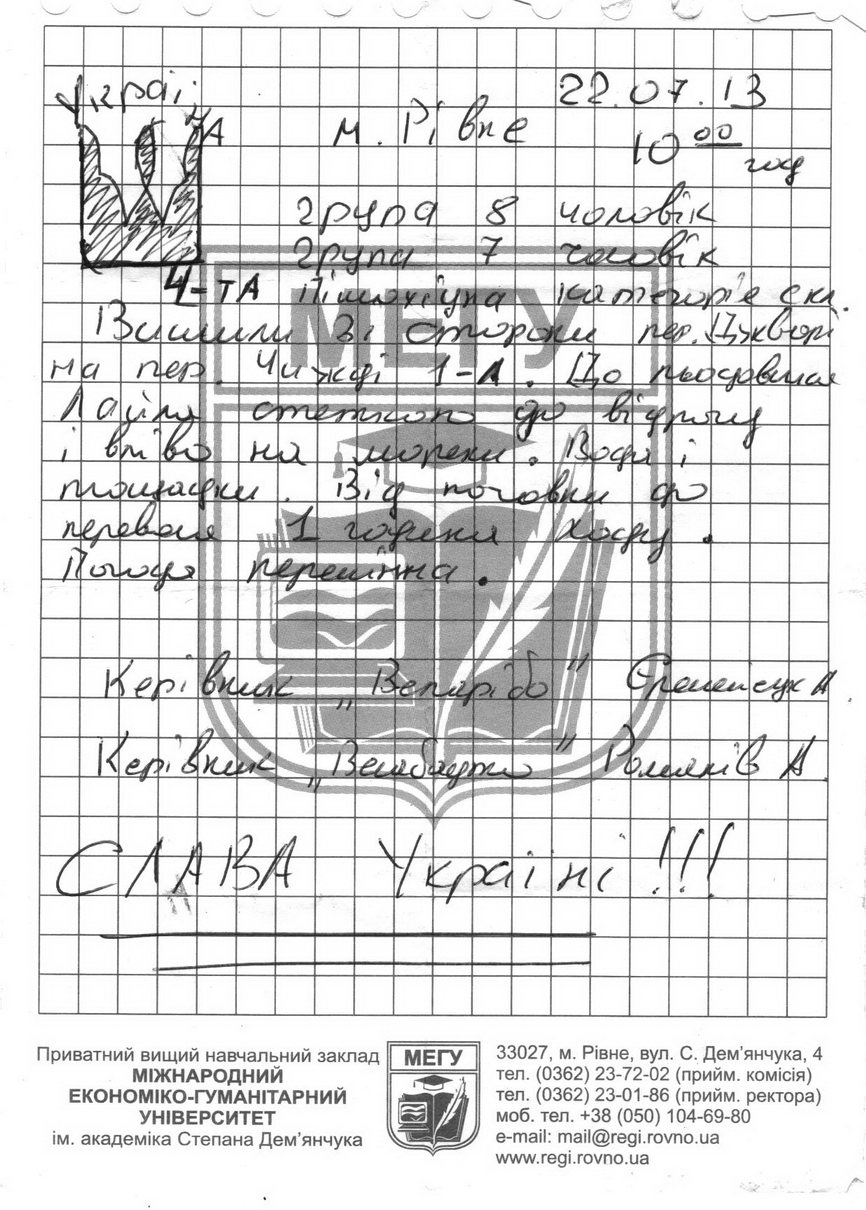 Украї
НА
22.07.13
м. Рівне
10 00 год
група 8 чоловік
група 7 чоловік
4-ТА Пішохідна категоріє скл.
Вийшли зі сторони пер. Джвари
на пер. Чижді 1-А. До льодовика
Лайла стежкою до
і вліво на морени. Вода і
площадки. Від ночовки до
перевала 1 година ходу.
Погода перемінна.
МЕГУ
Керівник „ " А
Керівник „ " Романів А.
СЛАВА Україні!!!
Приватний вищий навчальний заклад
МІЖНАРОДНИЙ
ЕКОНОМІКО-ГУМАНІТАРНИЙ
УНІВЕРСИТЕТ
ім. академіка Степана Дем'янчука
МЕГУ
33027, м. Рівне, вул. С. Дем'янчука, 4
тел. (0362) 23-72-02 (прийм. комісія)
тел. (0362) 23-01-86 (прийм. ректора)
моб. тел. +38 (050) 104-69-80
e-mail: mail@regi.rovno.ua
www.regi.rovno.ua